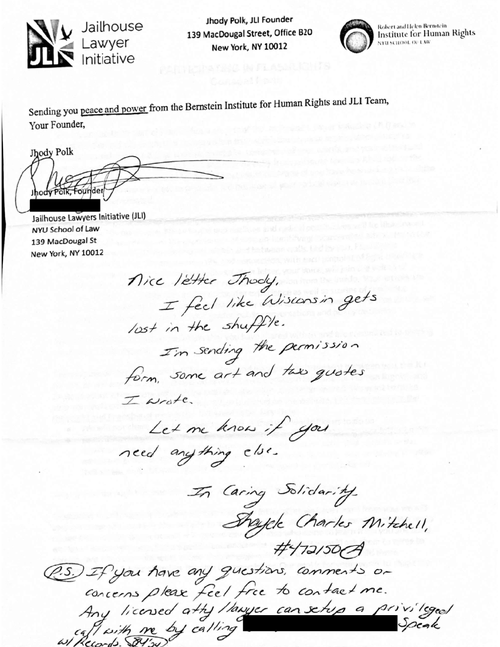 JLI
Jailhouse
Lawyer
Initiative
Jhody Polk, JLI Founder
139 MacDougal Street, Office B20
New York, NY 10012
Robert and Helen Bernstein
Institute for Human Rights
NYU SCHOOL OF LAW
Sending you peace and power from the Bernstein Institute for Human Rights and JLI Team,
Your Founder,
Jhody Polk
Jhody Polk, Founder
Jailhouse Lawyers Initiative (JLI)
NYU School of Law
139 MacDougal St
New York, NY 10012
Nice letter Jhody,
I feel like Wisconsin gets
lost in the shuffle.
I'm sending the permission
form, some art and two quotes
I wrote.
Let me know if you
need anything else.
In Caring Solidarity
Charles Mitchell,
#472150 A
P.S. If you have any questions, comments or
concerns please feel free to contact me.
Any licensed atty/lawyer can setup a privileged
call with me by calling Speak
w/ Records.